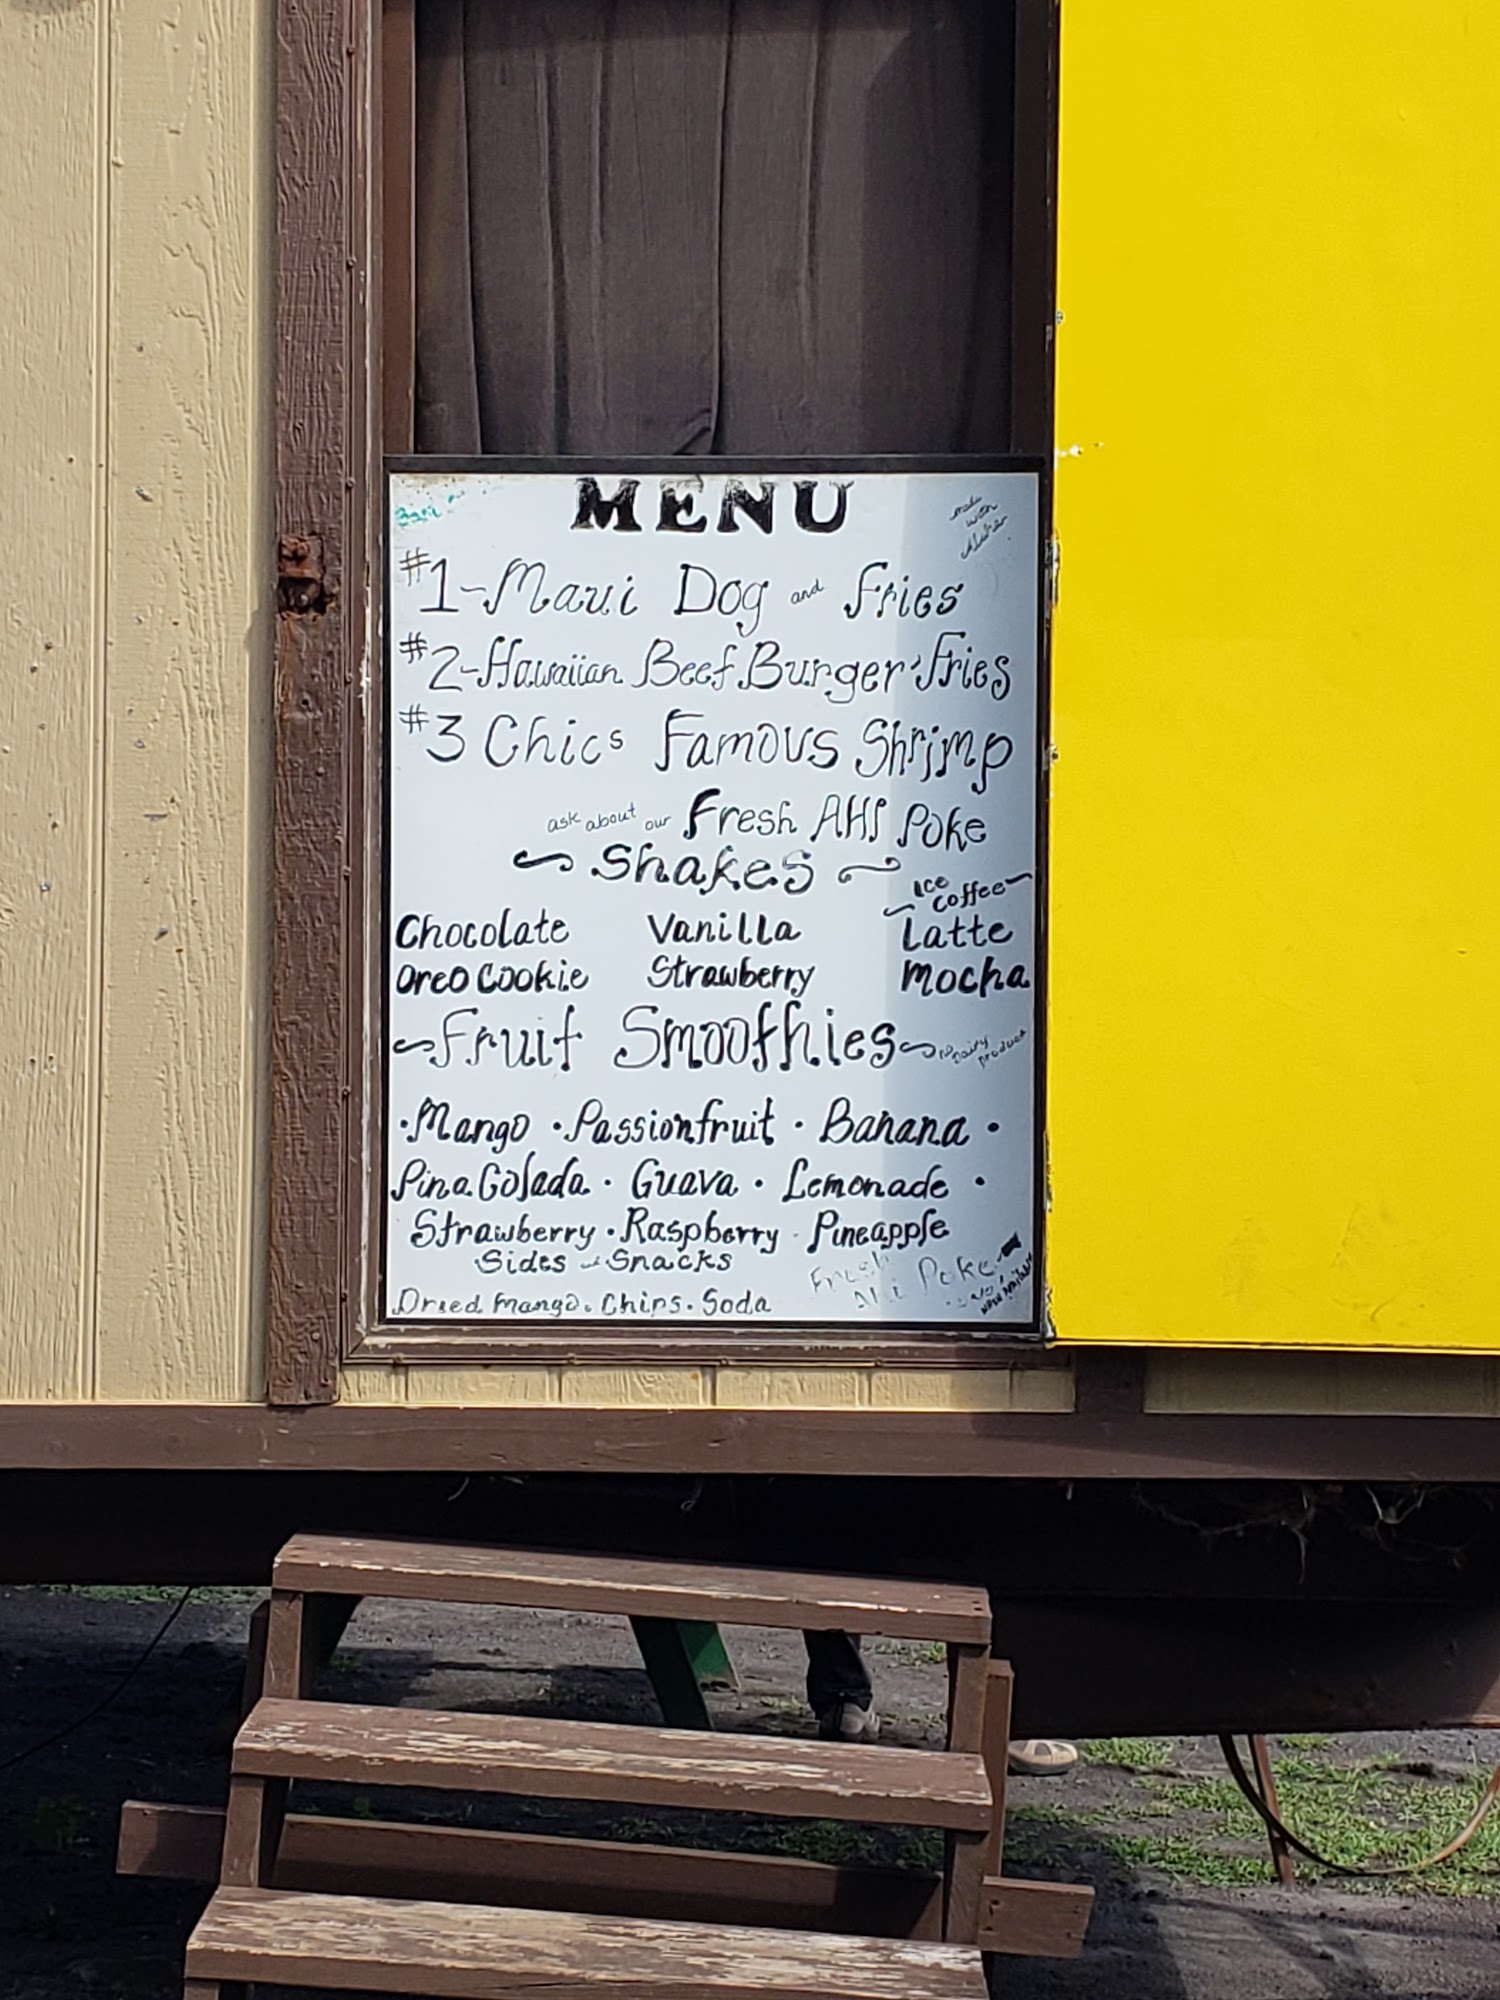 MENU
made with Aloha
#1-Maui Dog and Fries
#2-Hawaiian Beef Burger Fries
#3 Chics Famous Shrimp
ask about our Fresh AHI Poke
Shakes
Ice Coffee
Chocolate Vanilla Latte
Oreo Cookie Strawberry Mocha
Fruit Smoothies no dairy product
·Mango ·Passionfruit · Banana ·
Pina Colada · Guava · Lemonade ·
Strawberry · Raspberry · Pineapple
Sides Snacks
Fresh
Ahi Poke
Now Available
Dried Mango. Chips. Soda